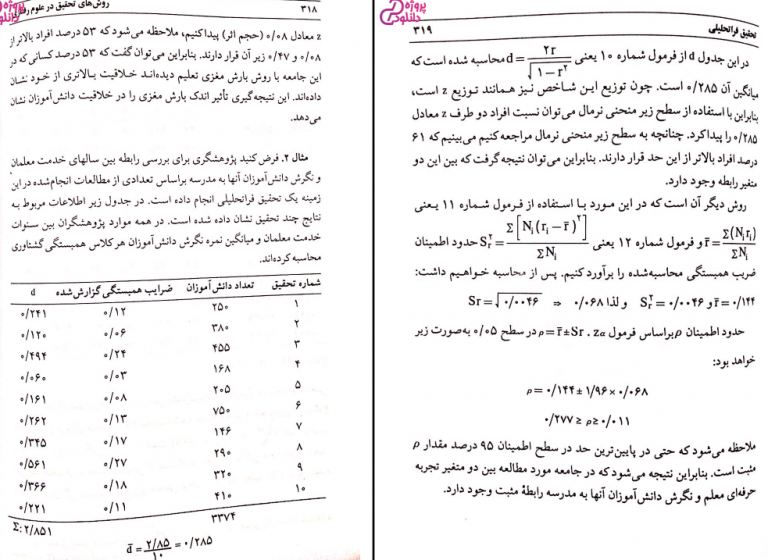 ۳۱۸
روش‌های تحقیق در علوم رفتاری
z معادل ۰/۰۸ (حجم اثر) پیدا کنیم، ملاحظه می‌شود که ۵۳ درصد افراد بالاتر از
۰/۰۸ و ۰/۴۷ زیر آن قرار دارند. بنابراین می‌توان گفت که ۵۳ درصد کسانی که در
این جامعه با روش بارش مغزی تعلیم دیده‌اند خلاقیت بالاتری از خود نشان
داده‌اند. این نتیجه‌گیری تأثیر اندک بارش مغزی را در خلاقیت دانش‌آموزان نشان
می‌دهد.
مثال ۲. فرض کنید پژوهشگری برای بررسی رابطه بین سالهای خدمت معلمان
و نگرش دانش‌آموزان آنها به مدرسه براساس تعدادی از مطالعات انجام‌شده در این
زمینه یک تحقیق فراتحلیلی انجام داده است. در جدول زیر اطلاعات مربوط به
نتایج چند تحقیق نشان داده شده است. در همه موارد پژوهشگران بین سنوات
خدمت معلمان و میانگین نمره نگرش دانش‌آموزان هر کلاس همبستگی گشتاوری
محاسبه کرده‌اند.
شماره تحقیق تعداد دانش‌آموزان ضرایب همبستگی گزارش‌شده d
۱ ۲۵۰ ۰/۱۲ ۰/۲۴۱
۲ ۳۸۰ ۰/۰۶ ۰/۱۲۰
۳ ۴۵۵ ۰/۲۴ ۰/۴۹۴
۴ ۱۶۸ ۰/۰۳ ۰/۰۶۰
۵ ۲۰۵ ۰/۰۸ ۰/۱۶۱
۶ ۷۵۰ ۰/۱۳ ۰/۲۶۲
۷ ۱۴۶ ۰/۱۷ ۰/۳۴۵
۸ ۲۹۰ ۰/۲۷ ۰/۵۶۱
۹ ۳۲۰ ۰/۱۸ ۰/۳۶۶
۱۰ ۴۱۰ ۰/۱۱ ۰/۲۲۱
۳۳۷۴ Σ:۲/۸۵۱
d̄ = ۲/۸۵ / ۱۰ = ۰/۲۸۵
پروژه دانلود
تحقیق فراتحلیلی
۳۱۹
در این جدول d از فرمول شماره ۱۰ یعنی d = ۲r / √(۱−r۲) محاسبه شده است که
میانگین آن ۰/۲۸۵ است. چون توزیع این شاخص نیز همانند توزیع z است،
بنابراین با استفاده از سطح زیر منحنی نرمال می‌توان نسبت افراد دو طرف z معادل
۰/۲۸۵ را پیدا کرد. چنانچه به سطح زیر منحنی نرمال مراجعه کنیم می‌بینیم که ۶۱
درصد افراد بالاتر از این حد قرار دارند. بنابراین می‌توان نتیجه گرفت که بین این دو
متغیر رابطه وجود دارد.
روش دیگر آن است که در این مورد با استفاده از فرمول شماره ۱۱ یعنی
r̄ = Σ(Nᵢrᵢ) / ΣNᵢ و فرمول شماره ۱۲ یعنی S۲r = Σ[Nᵢ(rᵢ − r̄)۲] / ΣNᵢ حدود اطمینان
ضرب همبستگی محاسبه‌شده را برآورد کنیم. پس از محاسبه خواهیم داشت:
r̄=۰/۱۴۴ و S۲r = ۰/۰۰۴۶ و لذا ۰/۰۶۸ ⇒ Sr = √۰/۰۰۴۶
حدود اطمینان ρ براساس فرمول ρ=r̄±Sr . zα در سطح ۰/۰۵ به‌صورت زیر
خواهد بود:
ρ = ۰/۱۴۴ ± ۱/۹۶ × ۰/۰۶۸
۰/۲۷۷ ≥ ρ ≥ ۰/۰۱۱
ملاحظه می‌شود که حتی در پایین‌ترین حد در سطح اطمینان ۹۵ درصد مقدار ρ
مثبت است. بنابراین نتیجه می‌شود که در جامعه مورد مطالعه بین دو متغیر تجربه
حرفه‌ای معلم و نگرش دانش‌آموزان آنها به مدرسه رابطهٔ مثبت وجود دارد.